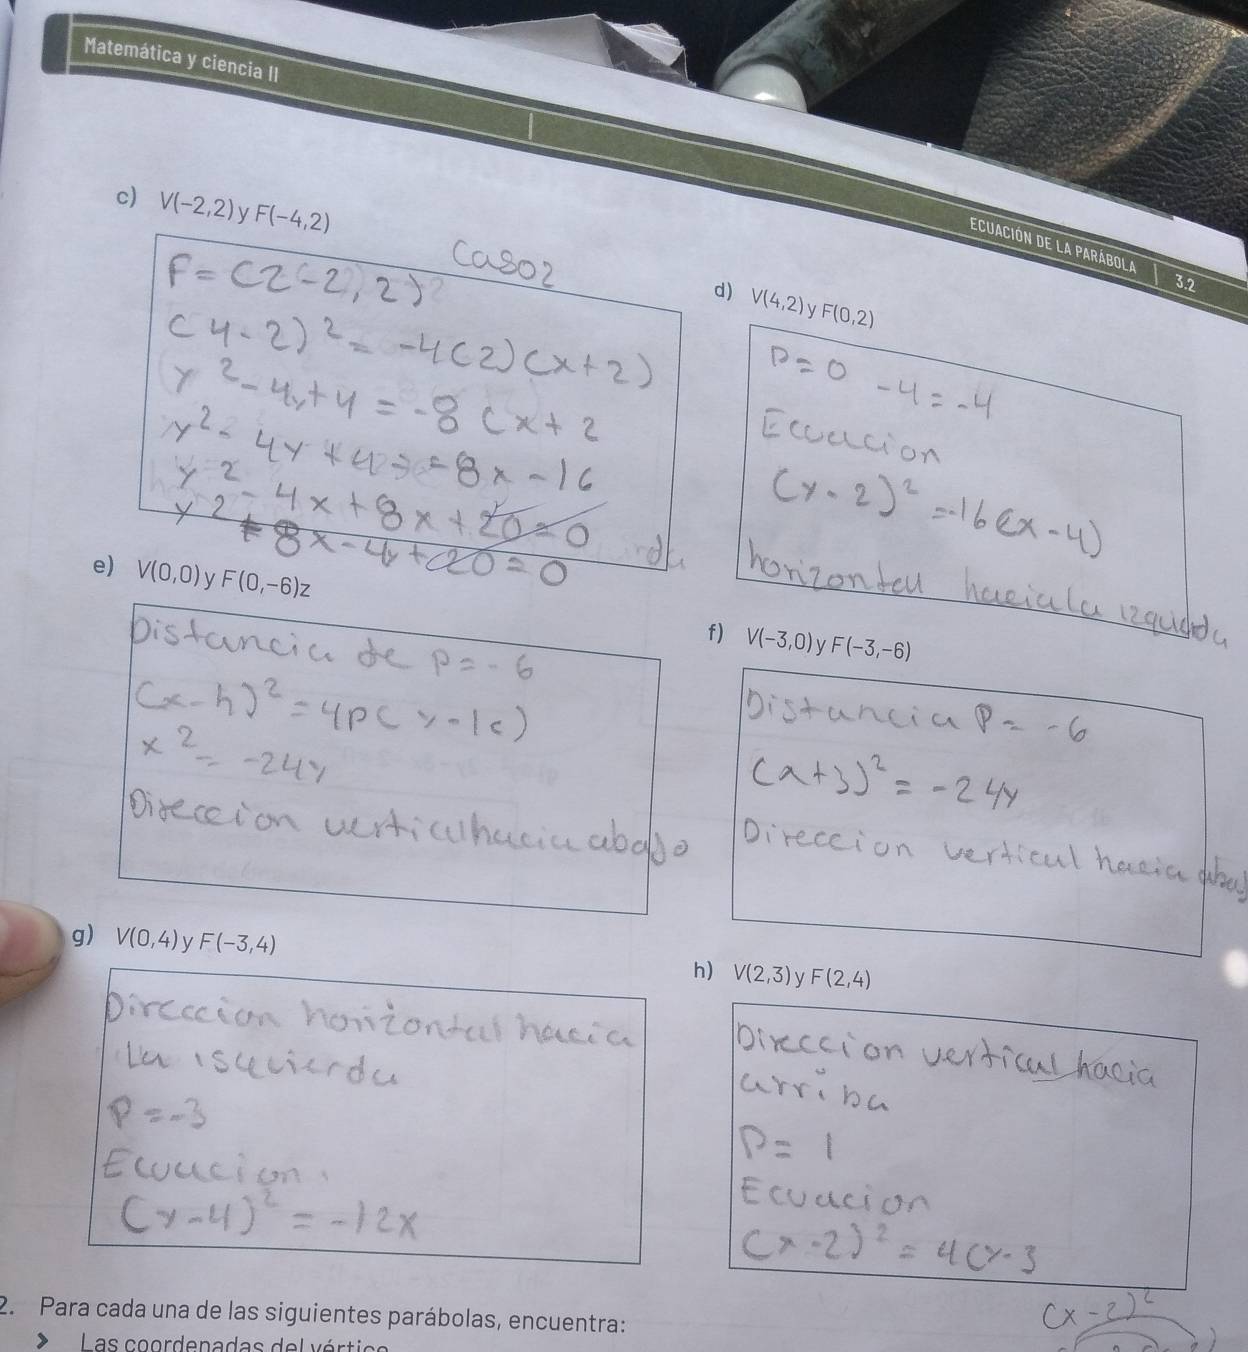 Matemática y ciencia II
ECUACIÓN DE LA PARÁBOLA | 3.2
c) V(-2,2) y F(-4,2)
Caso 2
(y-2)² = -4(2)(x+2)
y²-4y+4 = -8(x+2
y²-4y+4 = -8x-16
y²-4x+8x+20=0
y²+8x-4y+20=0
d) V(4,2) y F(0,2)
P=0-4=-4
Ecuacion
(y-2)²=-16(x-4)
horizontal hacia la izquierda
e) V(0,0) y F(0,-6)z
Distancia de p=-6
(x-h)²=4p(y-k)
x²=-24y
Direccion vertical hacia abajo
f) V(-3,0) y F(-3,-6)
Distancia P=-6
(x+3)²=-24y
Direccion vertical hacia abaj
g) V(0,4) y F(-3,4)
Direccion horizontal hacia
La isquierda
P=-3
Ecuacion.
(y-4)²=-12x
h) V(2,3) y F(2,4)
Direccion vertical hacia
arriba
P=1
Ecuacion
(x-2)²=4(y-3
2. Para cada una de las siguientes parábolas, encuentra:
(x-2)²
Las coordenadas del vértice